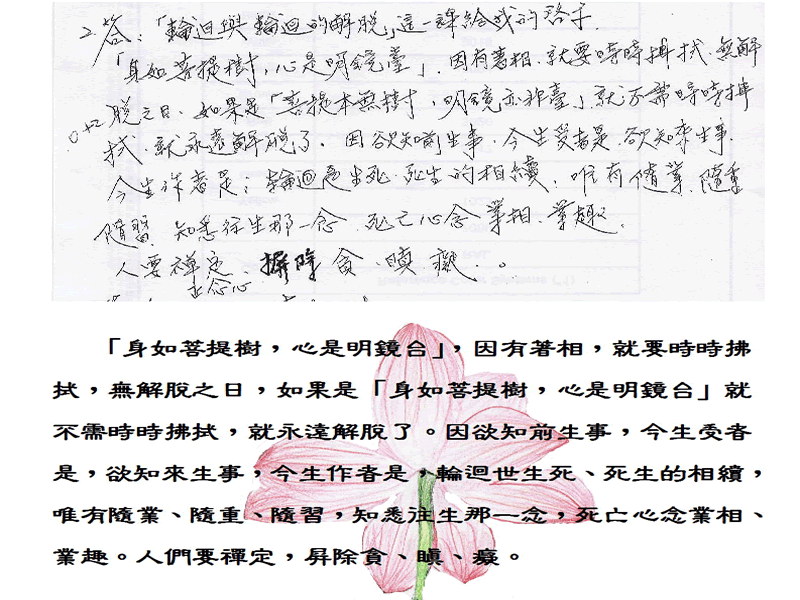 2. 答：「輪迴與輪迴的解脫」這一課給我的啓示.
「身如菩提樹，心是明鏡臺」. 因有著相. 就要時時拂拭. 無解
脫之日. 如果是「菩提本無樹，明鏡亦非臺」就不需時時拂
拭. 就永遠解脫了. 因欲知前生事，今生受者是. 欲知來生事.
今生作者是; 輪迴是生死. 死生的相續. 唯有隨業. 隨重
隨習. 知悉往生那一念. 死亡心念 業相. 業趣.
人要禪定. 摒除 貪、瞋 癡. 。
正念心
「身如菩提樹，心是明鏡台」，因有著相，就要時時拂
拭，無解脫之日，如果是「身如菩提樹，心是明鏡台」就
不需時時拂拭，就永遠解脫了。因欲知前生事，今生受者
是，欲知來生事，今生作者是，輪迴世生死、死生的相續，
唯有隨業、隨重、隨習，知悉往生那一念，死亡心念業相、
業趣。人們要禪定，屏除貪、瞋、癡。